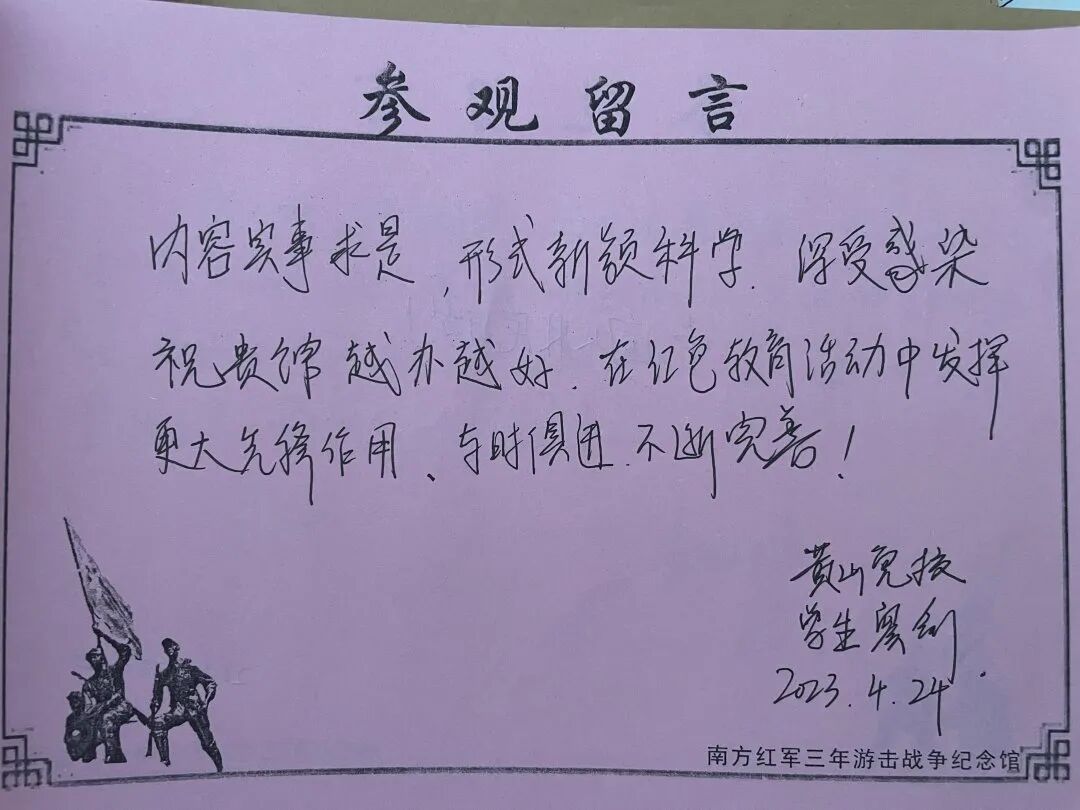 参观留言
内容实事求是,形式新颖科学.深受感染
祝贵馆越办越好.在红色教育活动中发挥
更大先锋作用、与时俱进.不断完善!
黄山党校
学生
2023.4.24
南方红军三年游击战争纪念馆